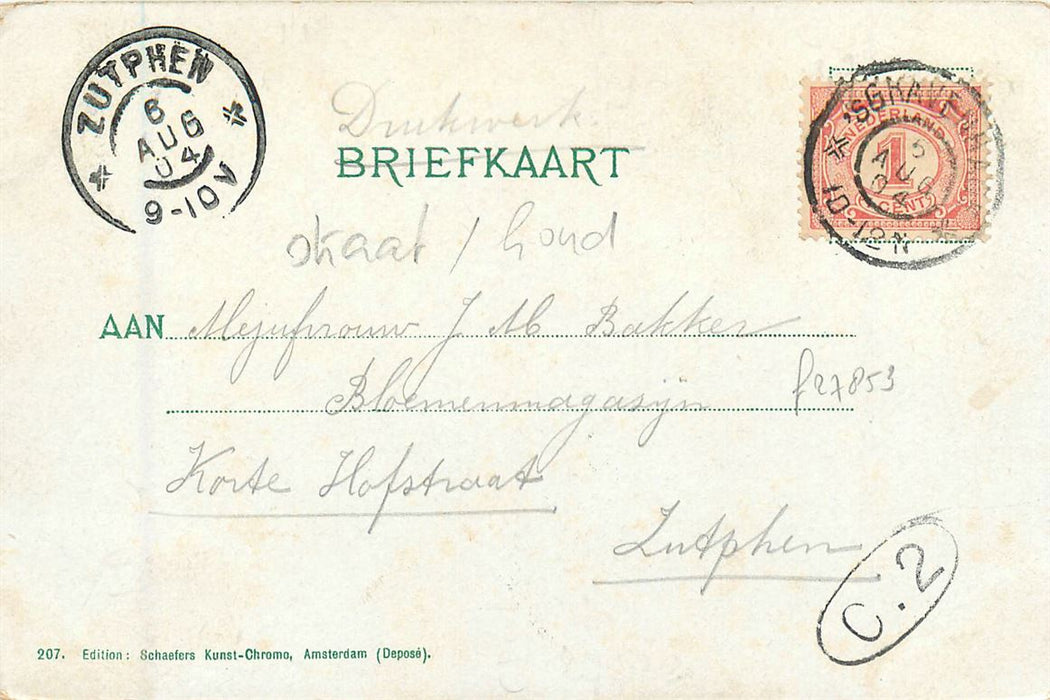 ZUTPHEN
6
AUG
04
9-10V
Drukwerk.
NEDERLAND
1
CENT
5
AUG
04
10-12N
BRIEFKAART
straat / Goud
AAN Mejufrouw J M Bakker
Bloemenmagasijn
f27853
Korte Hofstraat
Zutphen
C.2
207. Edition: Schaefers Kunst-Chromo, Amsterdam (Deposé).